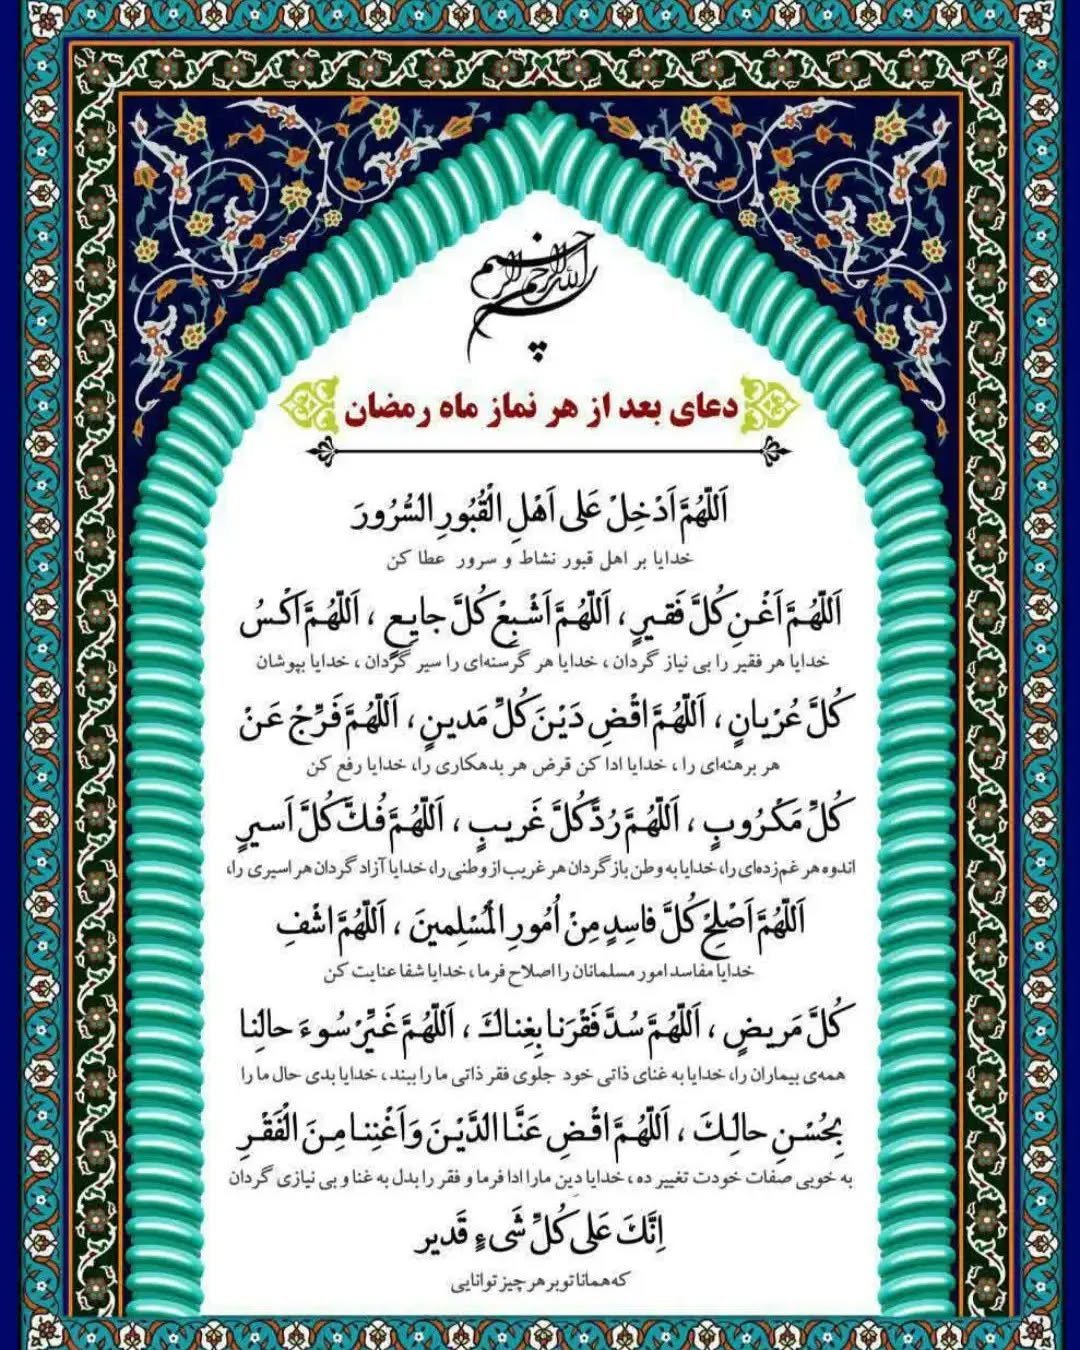 بسم الله الرحمن الرحیم
دعای بعد از هر نماز ماه رمضان
اَللّهُمَّ اَدْخِلْ عَلی اَهْلِ الْقُبُورِ السُّرُورَ
خدایا بر اهل قبور نشاط و سرور عطا کن
اَللّهُمَّ اَغْنِ کُلَّ فَقیرٍ ، اَللّهُمَّ اَشْبِعْ کُلَّ جایِعٍ ، اَللّهُمَّ اکْسُ
خدایا هر فقیر را بی نیاز گردان ، خدایا هر گرسنه‌ای را سیر گردان ، خدایا بپوشان
کُلَّ عُرْیانٍ ، اَللّهُمَّ اقْضِ دَیْنَ کُلِّ مَدینٍ ، اَللّهُمَّ فَرِّجْ عَنْ
هر برهنه‌ای را ، خدایا ادا کن قرض هر بدهکاری را، خدایا رفع کن
کُلِّ مَکْرُوبٍ ، اَللّهُمَّ رُدَّ کُلَّ غَریبٍ ، اَللّهُمَّ فُکَّ کُلَّ اَسیرٍ
اندوه هر غم‌زده‌ای را، خدایا به وطن بازگردان هر غریب از وطنی را، خدایا آزاد گردان هر اسیری را،
اَللّهُمَّ اَصْلِحْ کُلَّ فاسِدٍ مِنْ اُمُورِ الْمُسْلِمینَ ، اَللّهُمَّ اشْفِ
خدایا مفاسد امور مسلمانان را اصلاح فرما ، خدایا شفا عنایت کن
کُلَّ مَریضٍ ، اَللّهُمَّ سُدَّ فَقْرَنا بِغِناکَ ، اَللّهُمَّ غَیِّرْ سُوءَ حالِنا
همه‌ی بیماران را، خدایا به غنای ذاتی خود جلوی فقر ذاتی ما را ببند ، خدایا بدی حال ما را
بِحُسْنِ حالِکَ ، اَللّهُمَّ اقْضِ عَنَّا الدَّیْنَ وَ اَغْنِنا مِنَ الْفَقْرِ
به خوبی صفات خودت تغییر ده ، خدایا دِین مارا ادا فرما و فقر را بدل به غنا و بی نیازی گردان
اِنَّکَ عَلی کُلِّ شَیءٍ قَدیر
که همانا تو بر هر چیز توانایی